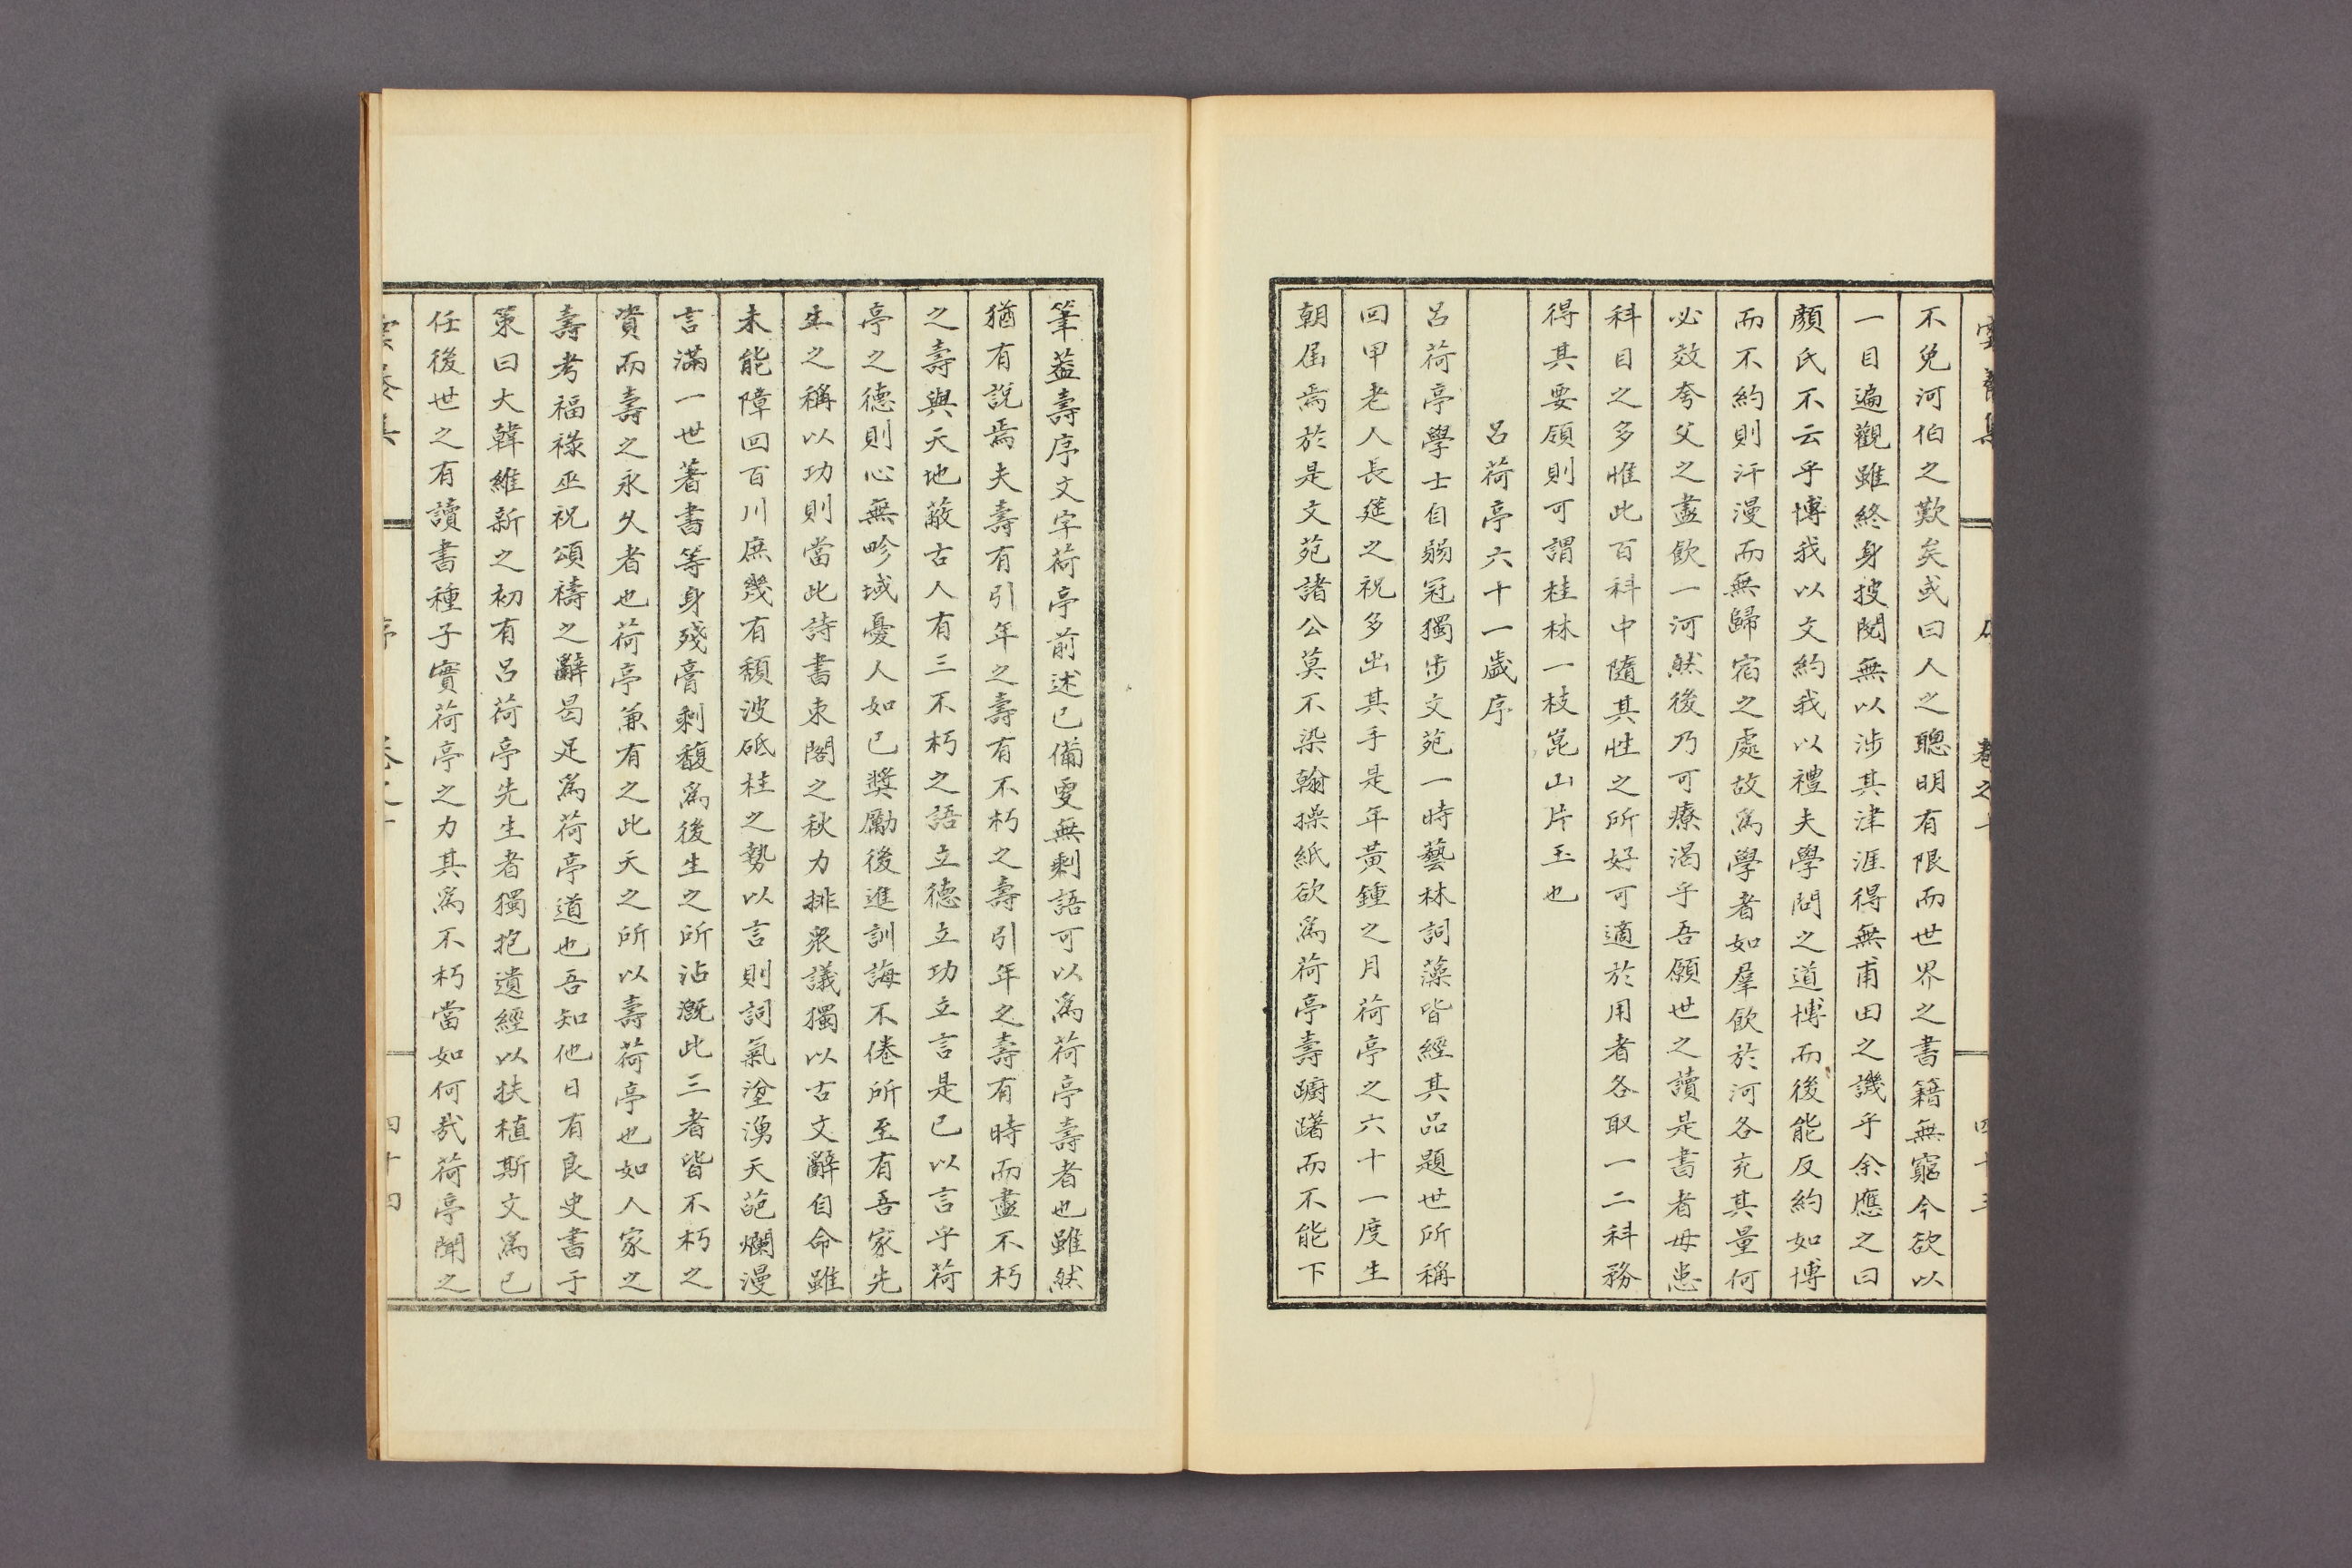 不免河伯之歎矣或曰人之聰明有限而世界之書籍無窮今欲以
一目遍觀雖終身披閱無以涉其津涯得無甫田之譏乎余應之曰
顏氏不云乎博我以文約我以禮夫學問之道博而後能反約如博
而不約則汗漫而無歸宿之處故爲學者如羣飮於河各充其量何
必效夸父之盡飮一河然後乃可療渴乎吾願世之讀是書者毋患
科目之多惟此百科中隨其性之所好可適於用者各取一二科務
得其要領則可謂桂林一枝崑山片玉也
呂荷亭六十一歲序
呂荷亭學士自弱冠獨步文苑一時藝林詞藻皆經其品題世所稱
回甲老人長筵之祝多出其手是年黃鍾之月荷亭之六十一度生
朝屆焉於是文苑諸公莫不染翰操紙欲爲荷亭壽躕躇而不能下
筆葢壽序文字荷亭前述已備更無剩語可以爲荷亭壽者也雖然
猶有說焉夫壽有引年之壽有不朽之壽引年之壽有時而盡不朽
之壽與天地蔽古人有三不朽之語立德立功立言是已以言乎荷
亭之德則心無畛域憂人如己奬勵後進訓誨不倦所至有吾家先
生之稱以功則當此詩書束閣之秋力排衆議獨以古文辭自命雖
未能障回百川庶幾有頹波砥柱之勢以言則詞氣塗湧天葩爛漫
言滿一世著書等身殘膏剩馥爲後生之所沾漑此三者皆不朽之
資而壽之永久者也荷亭兼有之此天之所以壽荷亭也如人家之
壽考福祿巫祝頌禱之辭曷足爲荷亭道也吾知他日有良史書于
策曰大韓維新之初有呂荷亭先生者獨抱遺經以扶植斯文爲己
任後世之有讀書種子實荷亭之力其爲不朽當如何哉荷亭聞之